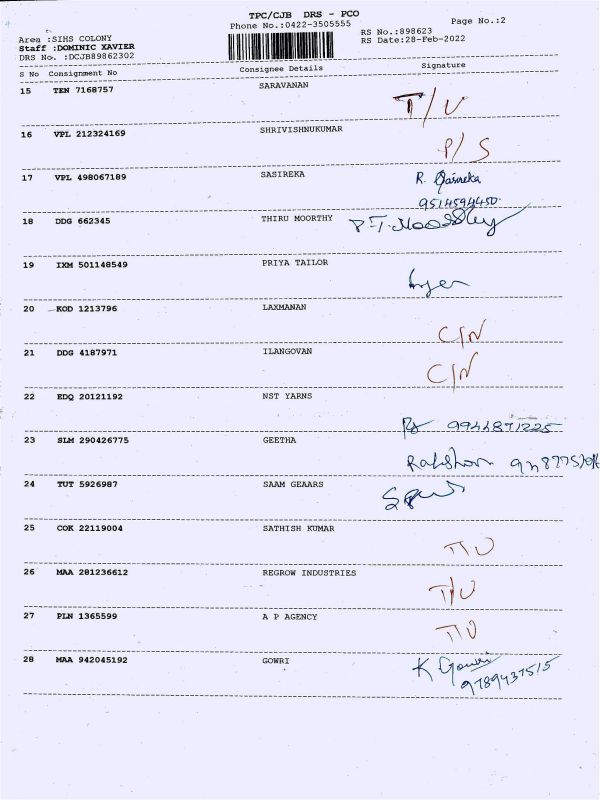 TPC/CJB DRS - PCO
Phone No.:0422-3505555
Page No.:2
Area :SIHS COLONY
RS No.:898623
Staff :DOMINIC XAVIER
RS Date:28-Feb-2022
DRS No. :DCJB89862302
S No Consignment No Consignee Details Signature
15 TEN 7168757 SARAVANAN
T/U
16 VPL 212324169 SHRIVISHNUKUMAR
P/S
17 VPL 498067189 SASIREKA
R. Sasireka
9514594450
18 DDG 662345 THIRU MOORTHY
19 IXM 501148549 PRIYA TAILOR
20 KOD 1213796 LAXMANAN
C/N
21 DDG 4187971 ILANGOVAN
C/N
22 EDQ 20121192 NST YARNS
9944871225
23 SLM 290426775 GEETHA
24 TUT 5926987 SAAM GEAARS
25 COK 22119004 SATHISH KUMAR
T/U
26 MAA 281236612 REGROW INDUSTRIES
T/U
27 PLN 1365599 A P AGENCY
T/U
28 MAA 942045192 GOWRI
K Gowri
9789437515